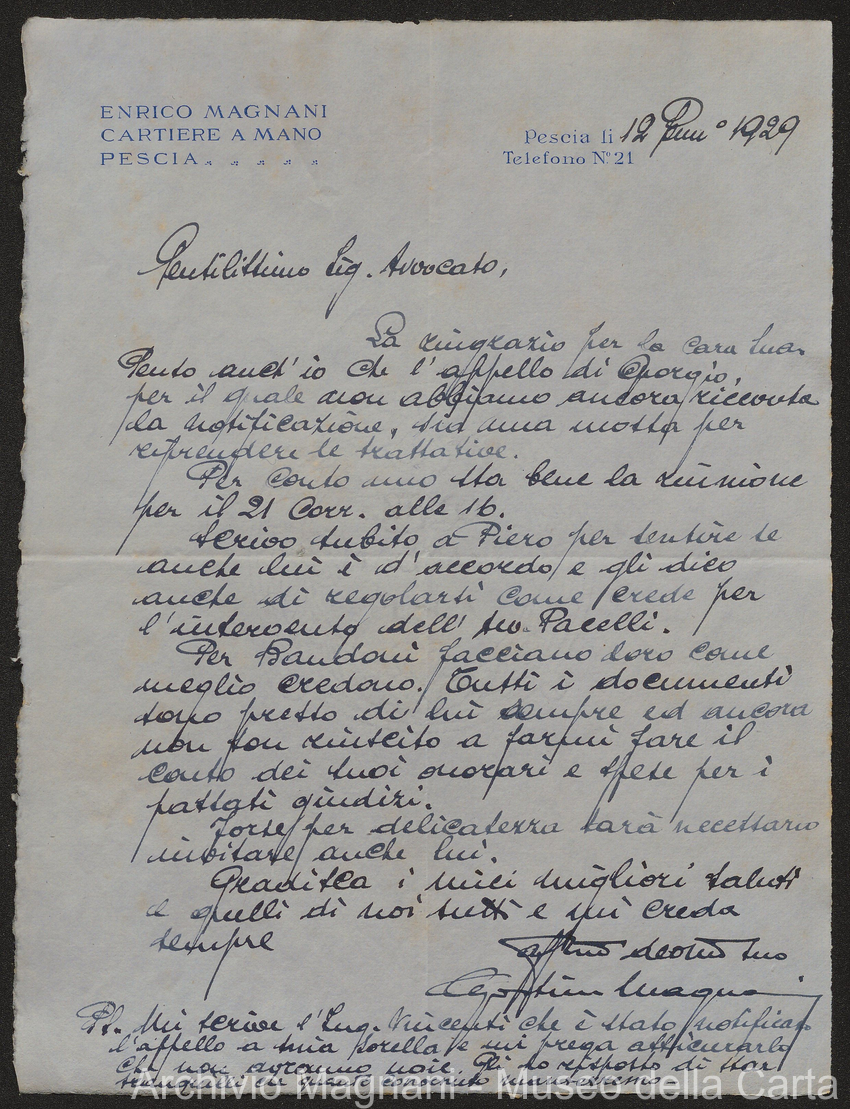 ENRICO MAGNANI
CARTIERE A MANO
PESCIA
Pescia li 12 Genn° 1929
Telefono N.° 21
Gentilissimo Sig. Avvocato,
La ringrazio per la cara Sua.
Sento anch'io che l'appello di Giorgio,
per il quale non abbiamo ancora ricevuta
la notificazione, sia una mossa per
riprendere le trattative.
Per conto mio sta bene la riunione
per il 21 Corr. alle 16.
Scrivo subito a Piero per sentire se
anche lui è d'accordo e gli dico
anche di regolarsi come crede per
l'intervento dell'Avv. Pacelli.
Per Bandoni facciano loro come
meglio credono. Tutti i documenti
sono presso di lui sempre ed ancora
non son riuscito a farmi fare il
conto dei suoi onorari e spese per i
passati giudizi.
Forse per delicatezza sarà necessario
invitare anche lui.
Gradisca i miei migliori saluti
e quelli di noi tutti e mi creda
sempre
suo
Magnani
Ps. Mi scrive l'Ing. Vincenti che è stato notificato
l'appello a mia sorella e mi prega assicurarla
che non avranno noie. Gli ho risposto di star
Archivio Magnani - Museo della Carta